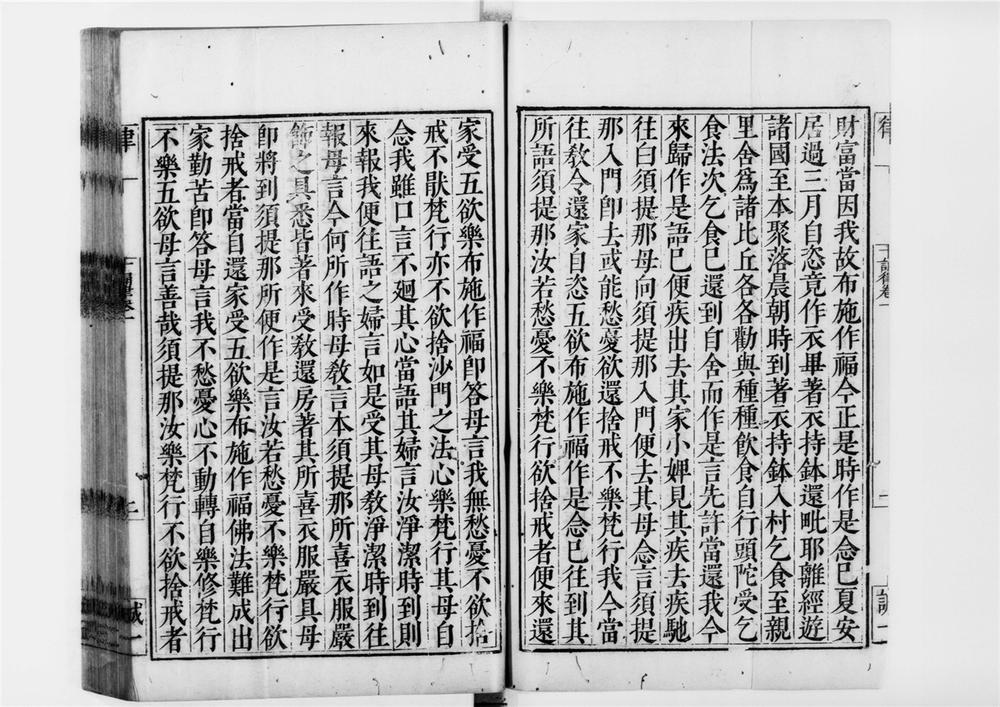 財富當因我故布施作福今正是時作是念已夏安
居過三月自恣竟作衣畢著衣持鉢還毗耶離經遊
諸國至本聚落晨朝時到著衣持鉢入村乞食至親
里舍爲諸比丘各各勸與種種飲食自行頭陀受乞
食法次乞食已還到自舍而作是言先許當還我今
來歸作是語已便疾出去其家小婢見其疾去疾馳
往白須提那母向須提那入門便去其母念言須提
那入門卽去或能愁憂欲還捨戒不樂梵行我今當
往敎令還家自恣五欲布施作福作是念已往到其
所語須提那汝若愁憂不樂梵行欲捨戒者便來還
家受五欲樂布施作福卽答母言我無愁憂不欲捨
戒不猒梵行亦不欲捨沙門之法心樂梵行其母自
念我雖口言不廻其心當語其婦言汝淨潔時到則
來報我便往語之婦言如是受其母敎淨潔時到往
報母言今何所作時母敎言本須提那所喜衣服嚴
飾之具悉皆著來受敎還房著其所喜衣服嚴具母
卽將到須提那所便作是言汝若愁憂不樂梵行欲
捨戒者當自還家受五欲樂布施作福佛法難成出
家勤苦卽答母言我不愁憂心不動轉自樂修梵行
不樂五欲母言善哉須提那汝樂梵行不欲捨戒者